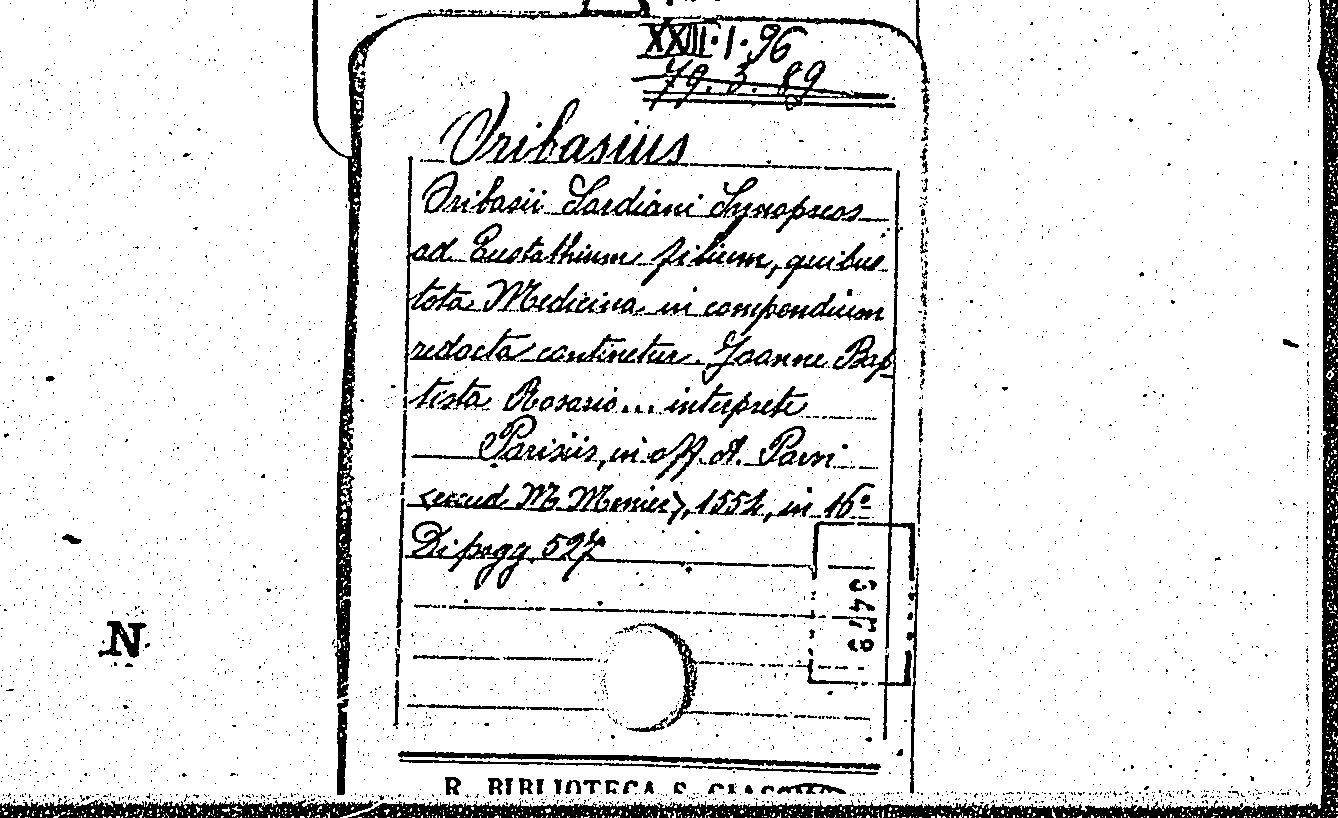 XXIII.1.96
79.3.89
Oribasius
Oribasii Sardiani Synopseos
ad Eustathium filium, quibus
tota Medicina in compendium
redacta continetur. Joanne Bap
tista Rosario... interprete
Parisiis, in off. A. Parvi
<excud M. Menier>, 1554, in 16º
Di pagg. 527
3479
N
R. BIBLIOTECA S. GIACOMO